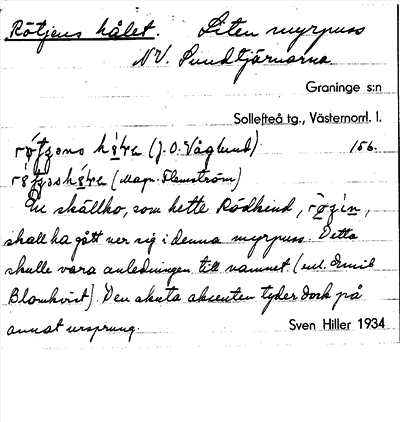 Rötjens hålet. Liten myrpuss
NV. Sundtjärnarna
Graninge s:n
Sollefteå tg., Västernorrl. l.
(J. O. Våglund) 156.
(Magn. Flemström)
En skällko, som hette Rödhind,
skall ha gått ner sig i denna myrpuss. Detta
skulle vara anledningen till namnet. (enl. Emil
Blomkvist). Den akuta aksenten tyder dock på
annat ursprung.
Sven Hiller 1934